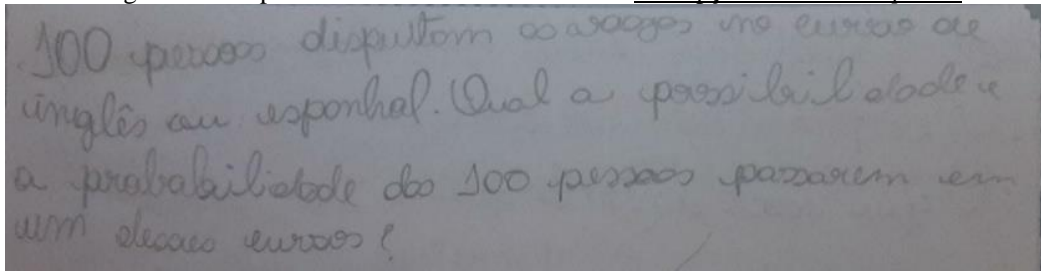 100 pessoas disputam as vagas no curso de
inglês ou esponhol. Qual a possibilidade e
a probabilidade das 100 pessoas passarem em
um desses cursos?